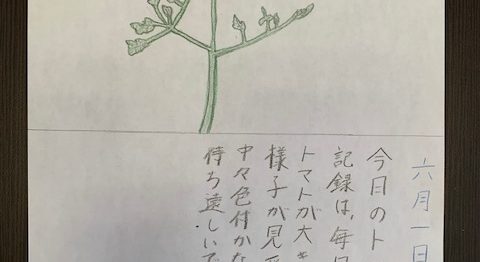 六月一日
今日のト
記録は、毎日
トマトが大き
様子が見受
中々色付かな
待ち遠しいで